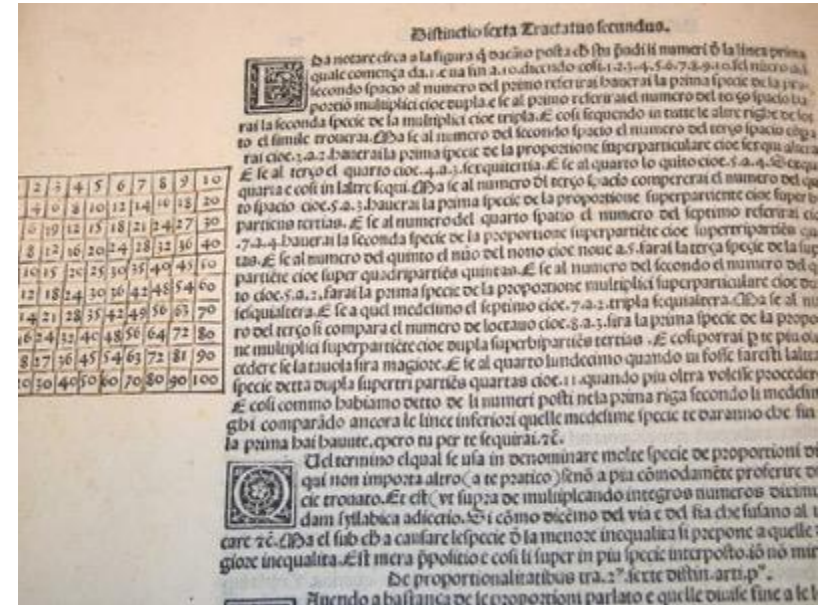 Distinctio sexta Tractatus secundus.
numeri
quale comença da.1.e ua fin a.10.dicendo cosi.1.2.3.4.5.6.7.8.9.10.
secondo spacio al numero del primo referirai hauerai la prima specie de la
portiõ multiplici cioe dupla.e se al primo referirai el numero del terço spacio
rai la seconda specie de la multiplici cioe tripla.E cosi sequendo in tutte le altre righe
to el simile trouerai.Ma se al numero del secondo spacio el numero del terço spacio
rai cioe.3.a.2.hauerai la prima specie de la proportione superparticulare cioe
E se al terço el quarto cioe.4.a.3.sexquitertia.E se al quarto lo quito cioe.5.a.4.
quarta e cosi in laltre sequi.Ma se al numero dl terço spacio compererai el numero del
to spacio cioe.5.a.3.hauerai la prima specie de la proportione superpartiente cioe super
partiens tertias.E se al numero del quarto spatio el numero del septimo referirai
.7.a.4.hauerai la seconda specie de la proportione superpartiẽte cioe supertripartiẽs
tas.E se al numero del quinto el nũo del nono cioe noue a.5.farai la terça specie de la
partiẽte cioe super quadripartiẽs quintas.E se al numero del secondo el numero del
to cioe.5.a.2.farai la prima specie de la proportione multiplici superparticulare cioe
sesquialtera.E se a quel medesimo el septimo cioe.7.a.2.tripla sequialtera.Ma se al
ro del terço si compara el numero de loctauo cioe.8.a.3.sira la prima specie de la
ne multiplici superpartiẽte cioe dupla superbipartiẽs tertias.E cosi porrai
cedere se la tauola sira magiore.E se al quarto lundecimo quando ui fosse
specie detta dupla supertri partiẽs quartas cioe.11.quando piu oltra volesse
E cosi commo habiamo detto de li numeri posti nela prima riga secondo li
ghi comparãdo ancora le linee inferiori quelle medesime specie te daranno che
la prima hai hauute.epero tu per te sequirai.
El termino elqual se usa in denominare molte specie de proportioni
qui non importa altro(a te pratico)senõ a piu cõmodamẽte proferire
cie trouato.Et est(vt supra de multiplicando integros numeros
dam syllabica adiectio.Si cõmo dicẽmo del via e del fia che
care Ma el sub a causare lespecie la menore inequalita si prepone a quelle
giore inequalita.Est mera e cosi li super in piu specie interposto.
De proportionalitatibus tra.2ⁱ.sexte distin.arti.pⁿ.
Auendo a bastança de le proportioni parlato e quelle
2 3 4 5 6 7 8 9 10
4 6 8 10 12 14 16 18 20
6 9 12 15 18 21 24 27 30
8 12 16 20 24 28 32 36 40
10 15 20 25 30 35 40 45 50
12 18 24 30 36 42 48 54 60
14 21 28 35 42 49 56 63 70
16 24 32 40 48 56 64 72 80
18 27 36 45 54 63 72 81 90
20 30 40 50 60 70 80 90 100